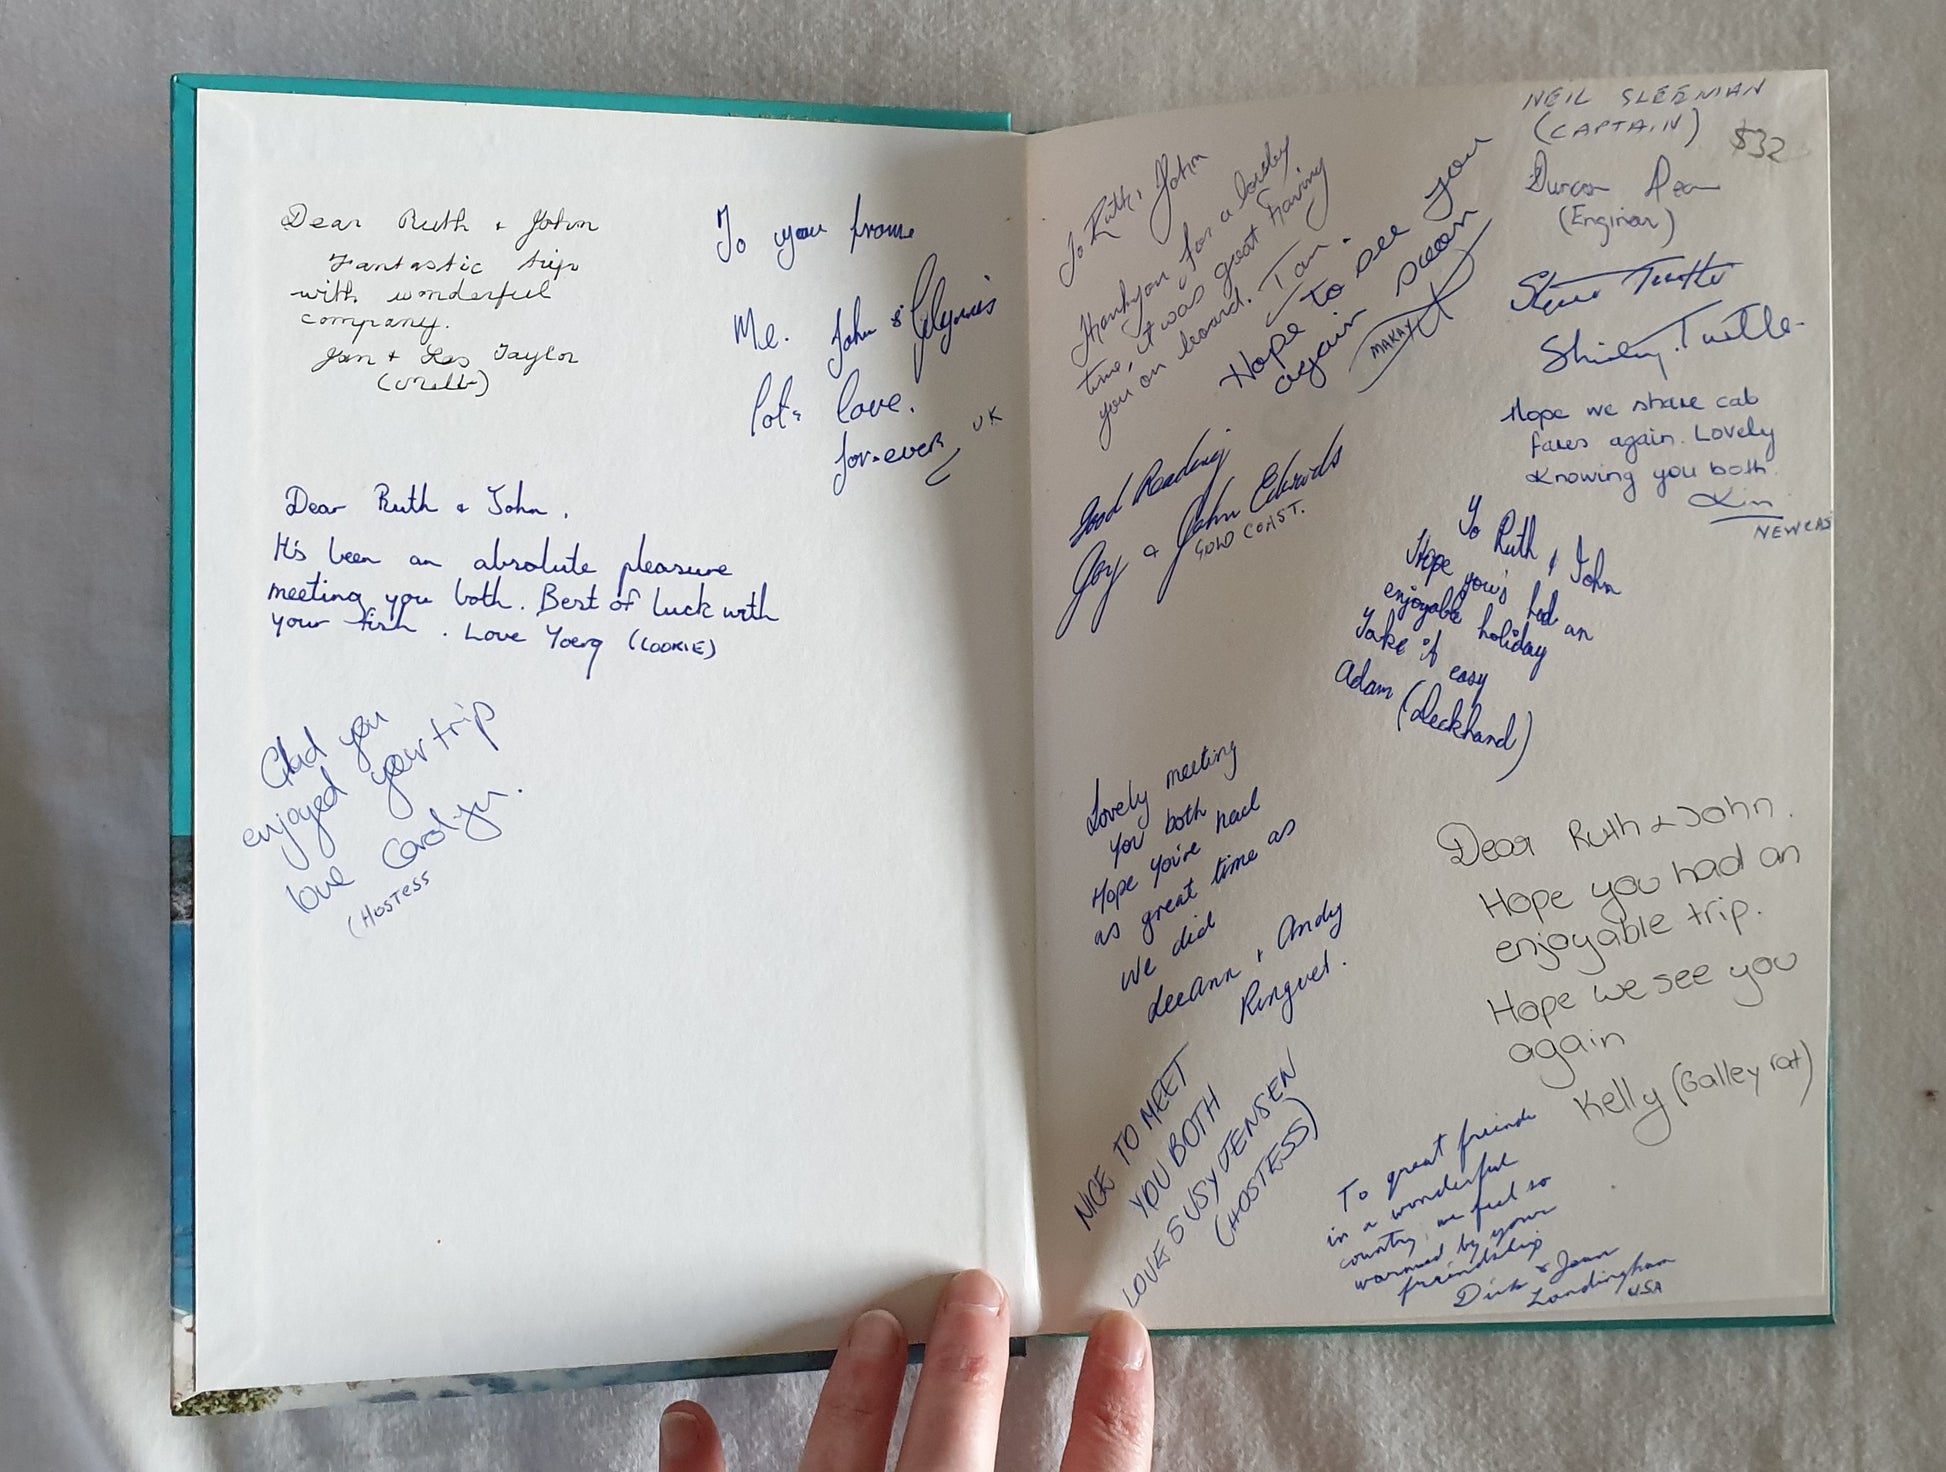 Dear Ruth & John
Fantastic trip
with wonderful
company.
Jan & Les Taylor
To you from
Me. John & Glynis
lots love.
for-ever UK
Dear Ruth & John.
It's been an absolute pleasure
meeting you both. Best of luck with
your fish. Love Yoerg (COOKIE)
Glad you
enjoyed your trip
love Carolyn.
(HOSTESS
NEIL SLEEMAN
(CAPTAIN)
$32
(Enginer)
To Ruth & John
Thankyou for a lovely
time, it was great having
you on board. Ian.
Hope to see you
again soon
MAKAY
Shirley Tuttle
Hope we share cab
fares again. Lovely
Knowing you both.
Kim
NEWCAS
Good Reading
Joy & John Edwards
GOLD COAST.
To Ruth & John
Hope you's had an
enjoyable holiday
Take it easy
Adam (deckhand)
Lovely meeting
you both
Hope you're had
as great time as
we did
LeeAnn & Andy
Ringuet.
Dear Ruth & John.
Hope you had an
enjoyable trip.
Hope we see you
again
Kelly (Galley rat)
NICE TO MEET
YOU BOTH
LOVE SUSY JENSEN
(HOSTESS)
To great friends
in a wonderful
country, we feel so
warmed by your
friendship
Dick & Jean
Landingham
USA